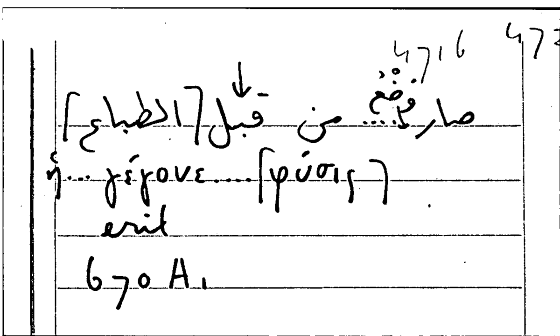 4716 473
صار .... من قبل [الطباع]
ἡ... γέγονε.... [φύσις]
erit
670 A.